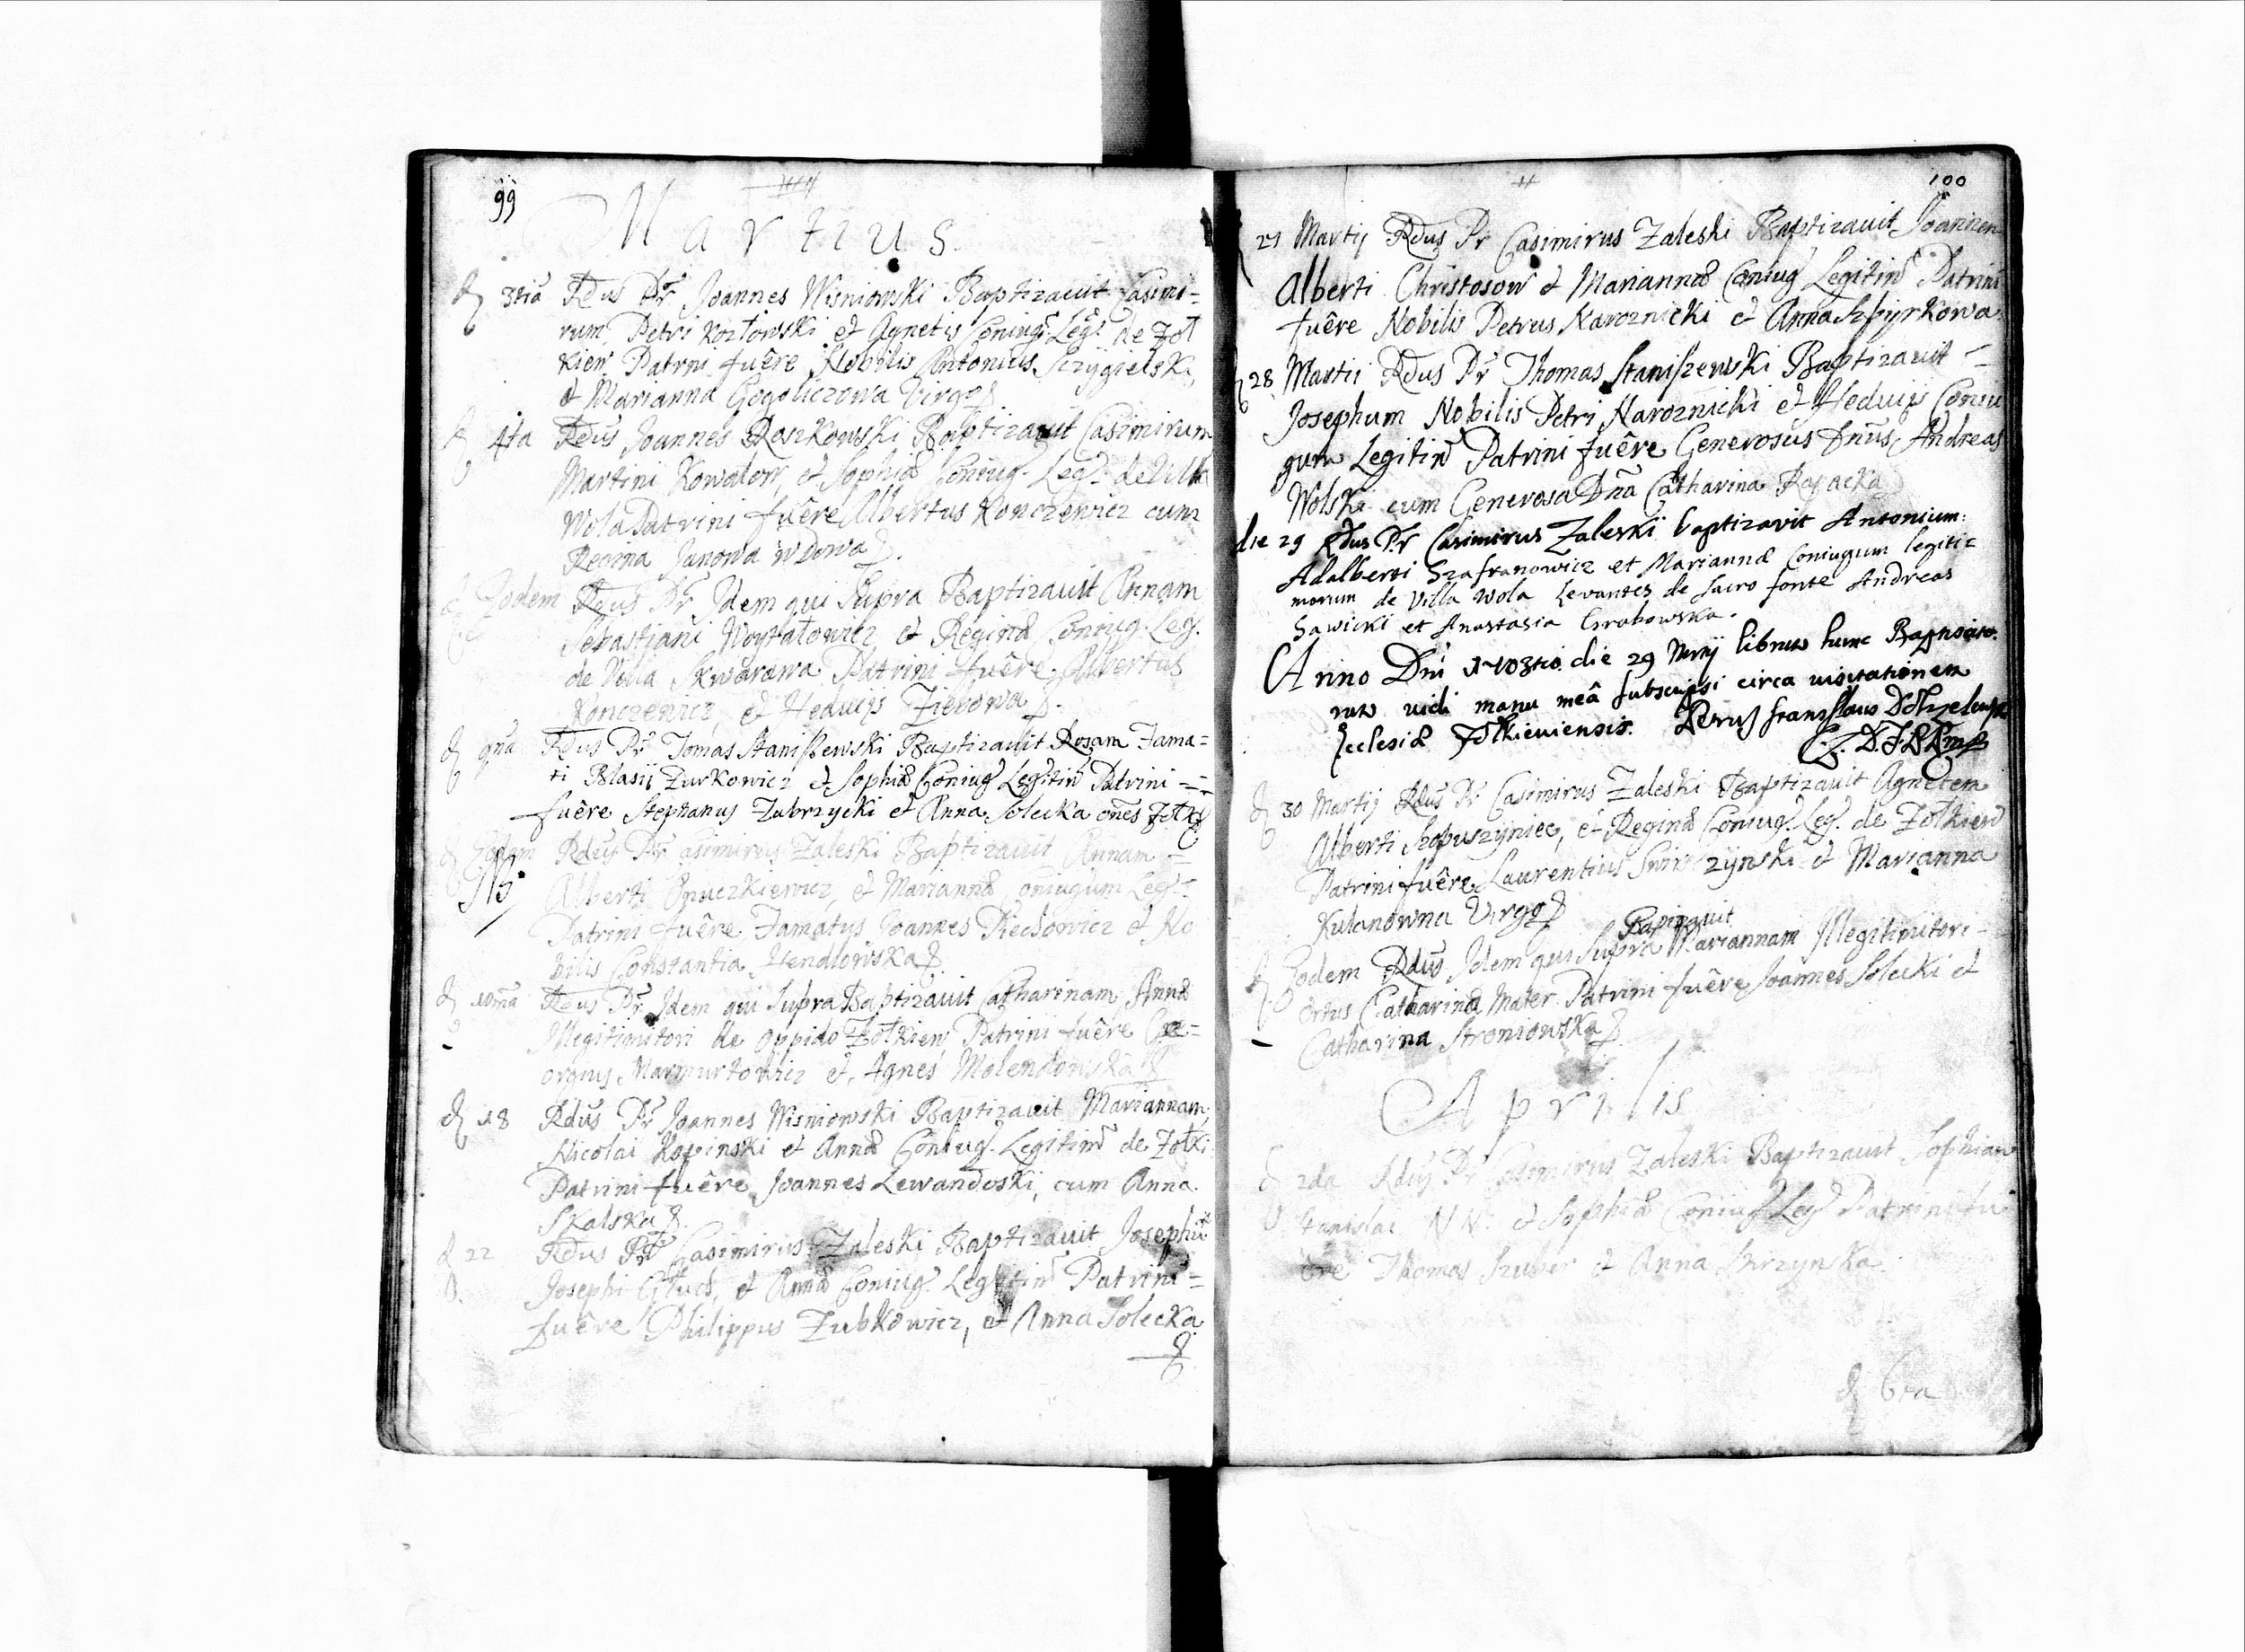 99
Martius.
d 3tia Rdus Pr Joannes Wisniowski Baptizavit Casimi=
rum, Petri Kozłowski et Agnetis Coniug. Leg. de Zoł
kiew Patrini fuêre Nobilis Antonius Sczygielski
et Marianna Gogoliczowa Virgo
d 4ta Rdus Joannes Roszkowski Baptizavit Casimirum
Martini Kowalow, et Sophiæ Coniug. Leg. de Villa
Wola Patrini fuêre Albertus Konczewicz cum
Regina Janowa wdowa
d Eodem Rdus Pr Idem qui Supra Baptizavit Annam
Sebastjani Woytałowicz, et Reginæ Coniug. Leg.
de Villa Skwarawa Patrini fuêre Albertus
Konczewicz, et Hedvijs Ziebowa
d 9na Rdus Pr Tomas Staniszewski Baptizavit Rosam Fama=
ti Blasij Zurkowicz et Sophiæ Coniug Legitim Patrini =
fuêre Stephanus Zubrzycki et Anna Solecka oñes Zołk
d Eodem Rdus Pr Casimirus Zaleski Baptizavit Annam =
Alberti Onuczkiewicz, et Mariannæ Coniugum Leg.
Patrini fuêre Famatus Joannes Dieckowicz et No
bilis Constantia Hendlowska
d 10ma Rdus Pr Idem qui Supra Baptizavit Catharinam Annæ
Illegitimitori de Oppido Zołkiew Patrini fuêre Ge=
orgius Marmurkowicz et Agnes Molendowska
d 18 Rdus Pr Joannes Wisniowski Baptizavit Mariannam,
Nicolai Kopinski et Annæ Coniug. Legitim de Zołki
Patrini fuêre Joannes Lewandoski, cum Anna
Skalska
d 22 Rdus Pr Casimirus Zaleski Baptizavit Josephũ
Josephi Głuch, et Annæ Coniug. Legitim Patrini =
fuêre Philippus Zubkowicz, et Anna Solecka
100
27 Martij Rdus Pr Casimirus Zaleski Baptizavit Joannem
Alberti Christosow et Mariannæ Coniug Legitim Patrini
fuêre Nobilis Petrus Karoznicki et Anna Szpyrkowa
28 Martii Rdus Pr Thomas Staniszewski Baptizavit =
Josephum Nobilis Petri Naroznicki et Hedvijs Coniu
gum Legitim Patrini fuêre Generosus Dnus Andreas
Wolski cum Generosa Dña Catharina Rojacka
die 29 Rdus Pr Casimirus Zaleski baptizavit Antonium:
Adalberti Szafranowicz et Mariannæ Coniugum legiti=
morum de Villa Wola Levantes de Sacro fonte Andreas
Sawicki et Anastasia Grabowska.
Anno Dni 1703tio die 29 Mrtij librum hunc Baptisato
rum vidi manu meâ subscripsi circa visitationem
Ecclesiæ Zołkieviensis.
d 30 Martij Rdus Pr Casimirus Zaleski Baptizavit Agnetem
Alberti Szopuszyniec, et Reginæ Coniug. Leg. de Zołkiew
Patrini fuêre Laurentius Swirzynski et Marianna
Kulanowna Virgo
Baptizavit
d Eodem Rdus Idem qui Supra Mariannam Illegitimitori =
Ortus Catharina Mater Patrini fuêre Joannes Solecki et
Catharina Stroniowska
Aprilis
d 2da Rdus Pr Casimirus Zaleski Baptizavit Sophiam
Stanislai N N. et Sophiæ Coniug Leg Patrini fu
ere Thomas Szuber et Anna Skrzynska
d 6ta